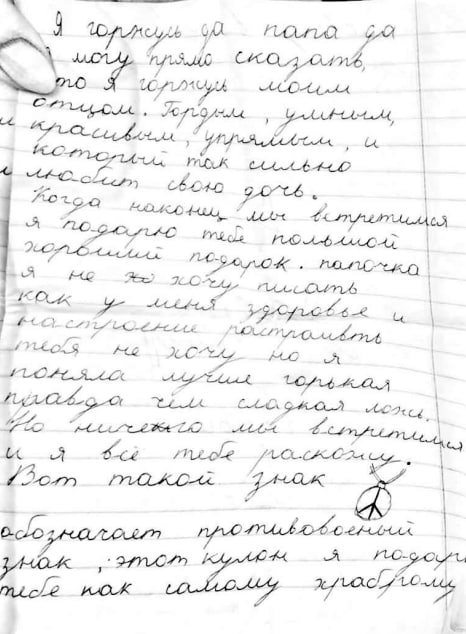 Я горжусь да папа да
могу прямо сказать,
что я горжусь моим
отцом. Гордым, умным,
и красивым, упрямым, и
который так сильно
и любит свою дочь.
Когда наконец мы встретимся
я подарю тебе польшой
хороший подарок. папочка
я не хочу писать
как у меня здоровье и
настроение растраивть
тебя не хочу но я
поняла лучше горькая
правда чем сладкая ложь.
Но ничего мы встретимся
и я всё тебе раскожу.
Вот такой знак
обозначает противовоеный
знак, этот кулон я подарю
тебе как самому храброму